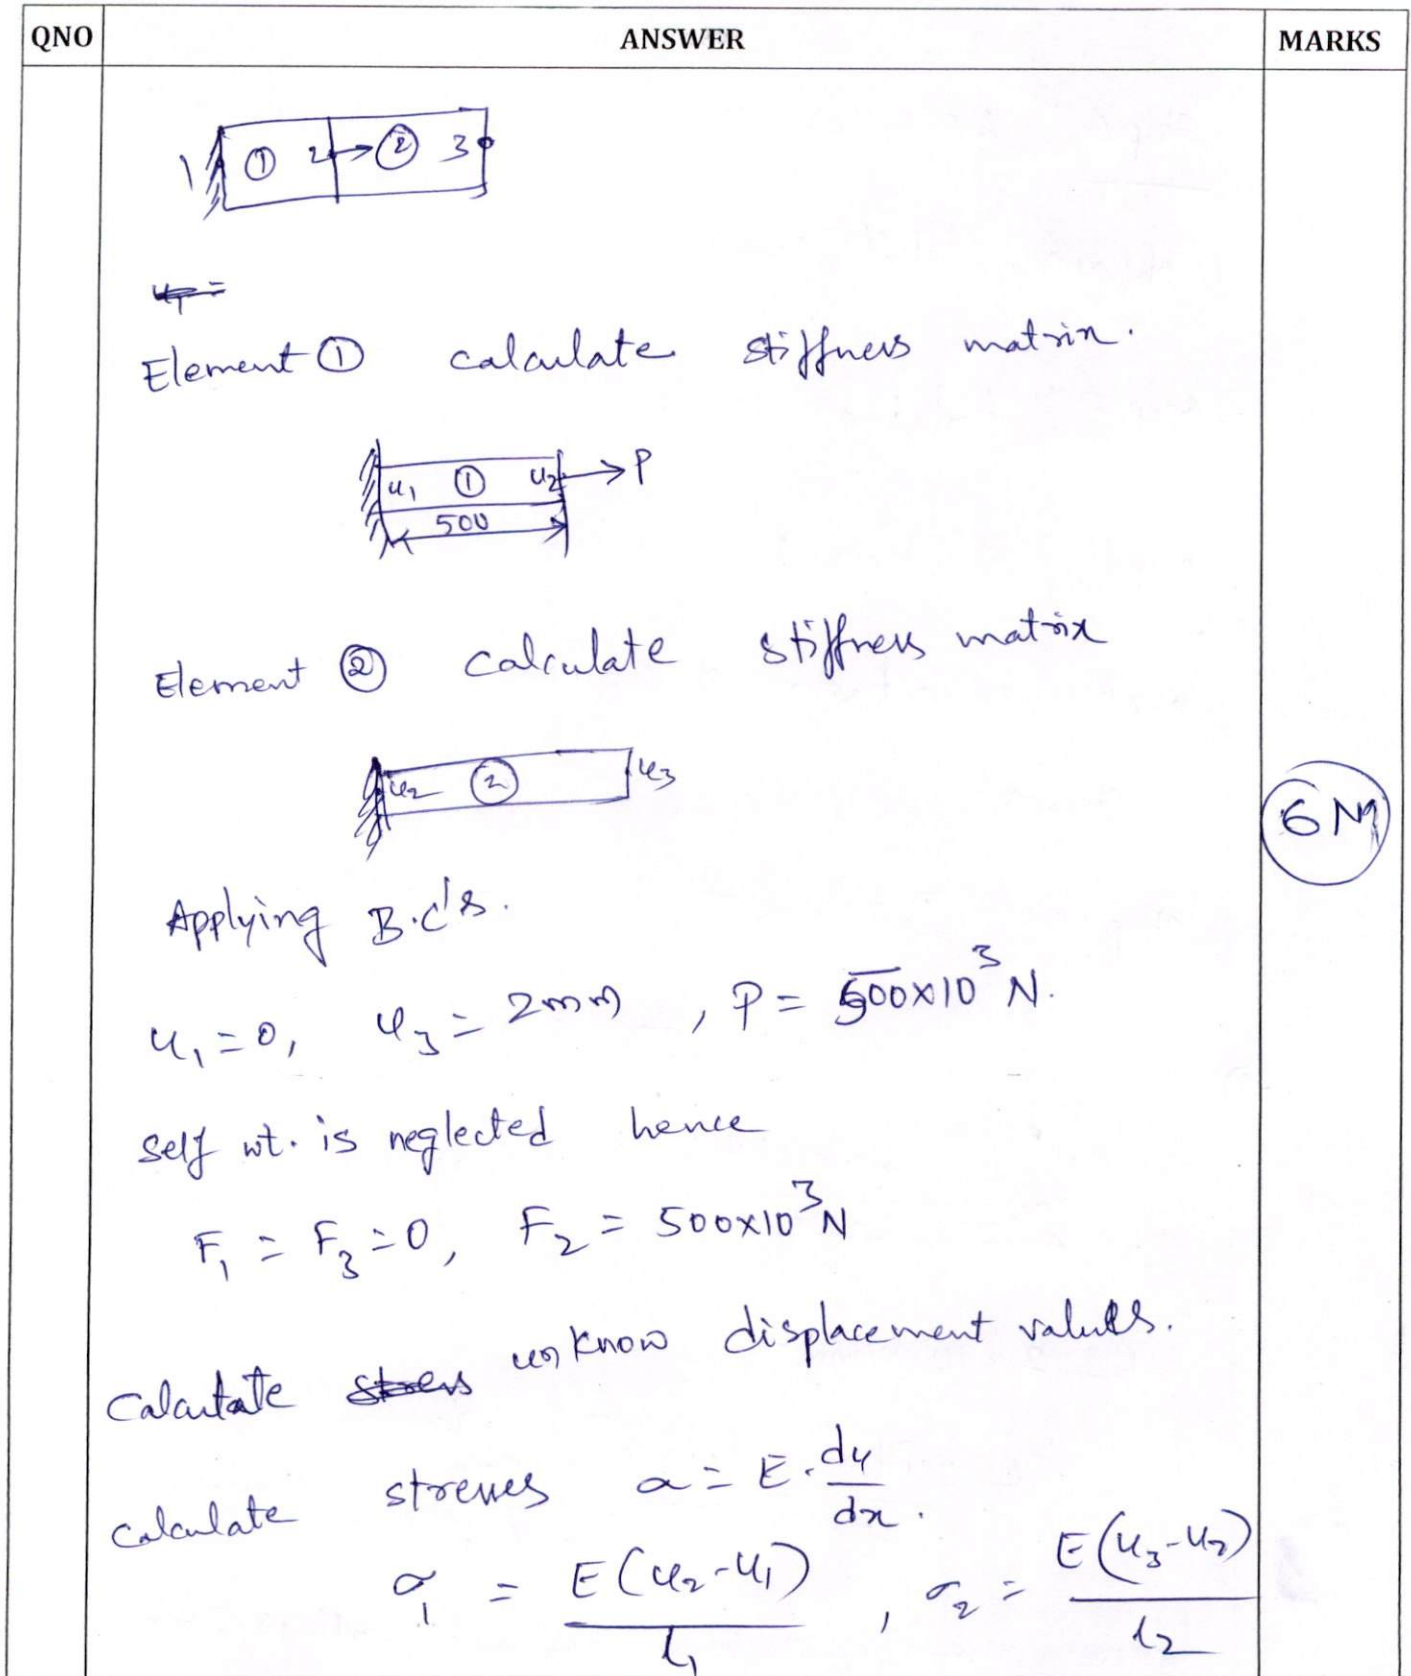 QNO ANSWER MARKS
1 ① 2 → ② 3
Element ① calculate stiffness matrix.
u₁ ① u₂ → P
500
Element ② calculate stiffness matrix
u₂ ② u₃
6M
Applying B.C's.
u₁ = 0, u₃ = 2mm, P = 500×10³ N.
Self wt. is neglected hence
F₁ = F₃ = 0, F₂ = 500×10³ N
Calculate unknow displacement values.
Calculate stresses σ = E · du/dx.
σ₁ = E(u₂-u₁)/l₁, σ₂ = E(u₃-u₂)/l₂